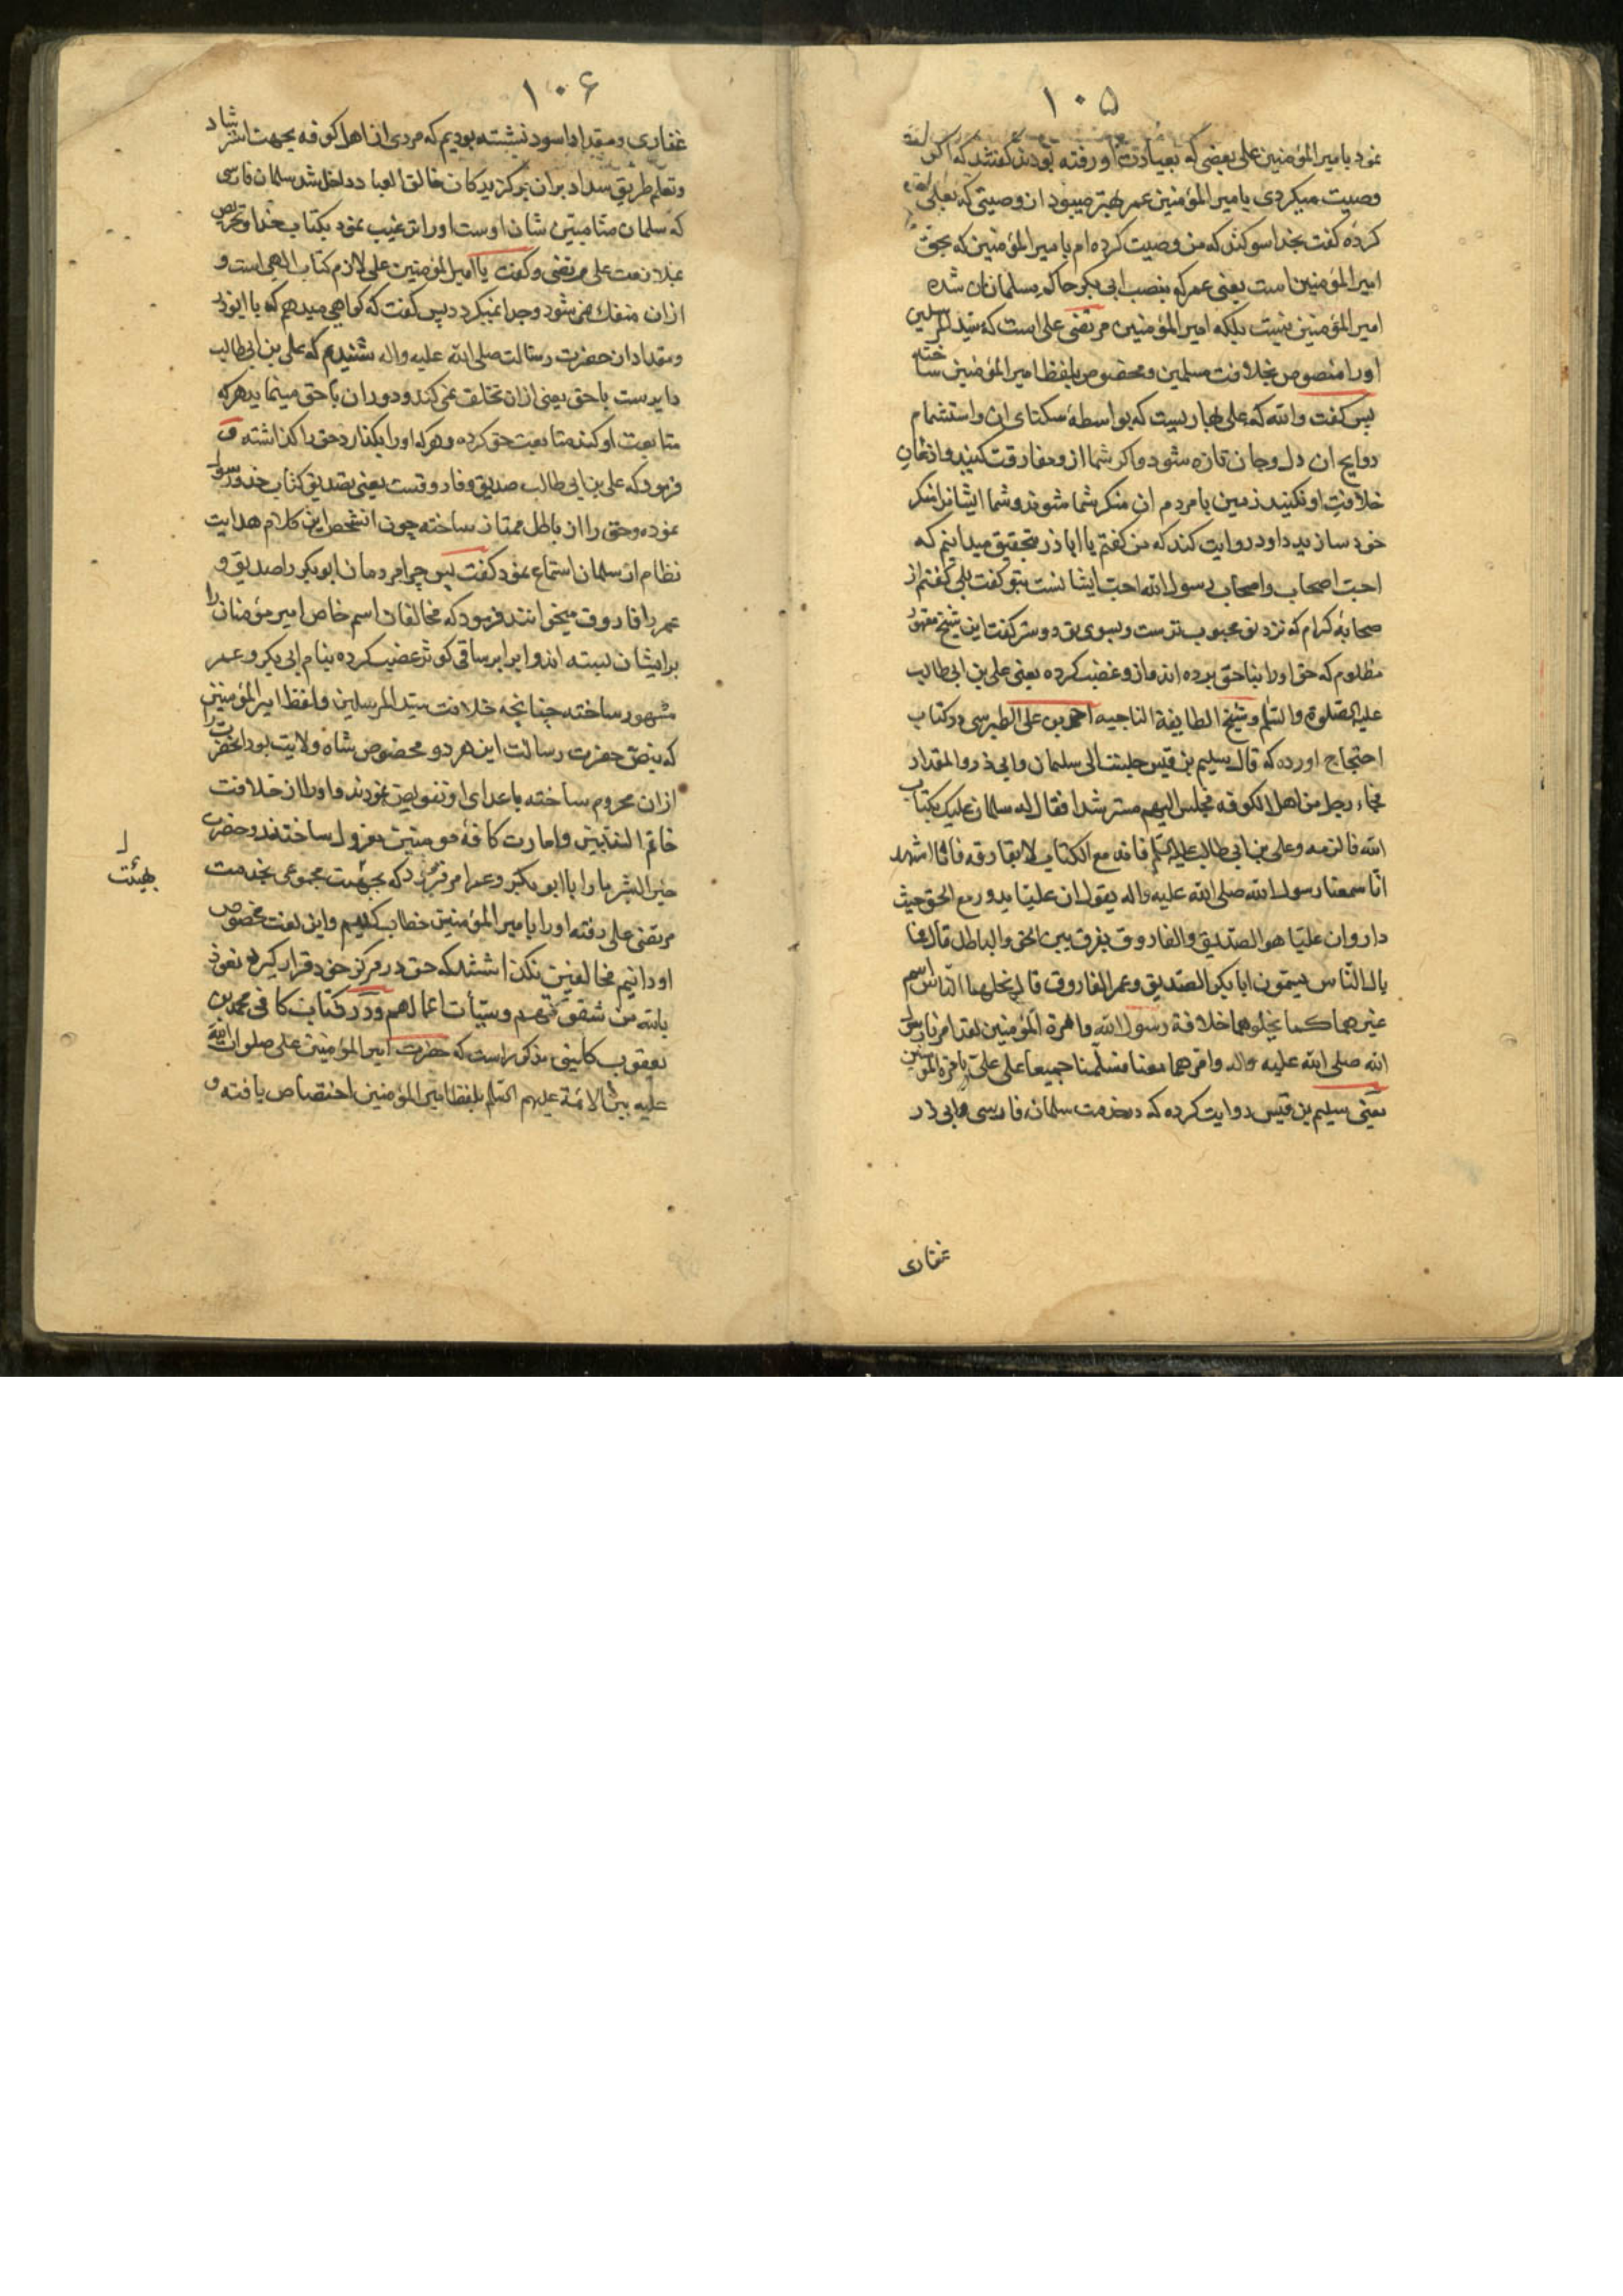 ۱۰۵
نمود بامیر المؤمنین علی بعضی که بعیادت او رفته بودند گفتند که اگر
وصیت میکردی بامیر المؤمنین عمر بهتر میبود ان وصیتی که بعلی
کرده گفت بخدا سوکند که من وصیت کرده ام بامیر المؤمنین که بحق
امیر المؤمنین است یعنی عمر که بنصب ابی بکر حاکم مسلمانان شده
امیر المؤمنین نیست بلکه امیر المؤمنین مرتضی علی است که سید المرسلین
اورا منصوص بخلافت مسلمین و مخصوص بلفظ امیر المؤمنین ساخته
پس کفت والله که علی بهاریست که بواسطهٔ سکنای ان و استشمام
روایح ان دل و جان تازه میشود و اکر شما از و مفارقت کنید و اذعان
خلافت او نکنید زمین با مردم ان منکر شما شوند و شما ایشانرا منکر
خود سازید داود روایت کند که من کفتم یا اباذر بتحقیق میدانیم که
احب اصحاب و اصحاب رسول الله احب ایشانست بتو کفت بلی کفتم از
صحابهٔ کرام که نزد تو محبوب ترست و بسوی تو دوستر کفت این شیخ مقهور
مظلوم که حق اورا بناحق برده اند و از و غضب کرده یعنی علی بن ابی طالب
علیه الصلوة والسلم و شیخ الطایفة الناجیه احمد بن علی الطبرسی در کتاب
احتجاج اورده که قال سلیم بن قیس جلست الی سلمان وابی ذر والمقداد
فجاء رجل من اهل الکوفه فجلس الیهم مسترشدا فقال له سلمان علیک بکتاب
الله فالزمه وعلی بن ابی طالب علیه السلم فانه مع الکتاب لا یفارقه فانا اشهد
انا سمعنا رسول الله صلی الله علیه واله یقول ان علیا یدور مع الحق حیث
دار وان علیا هو الصدیق والفاروق یفرق بین الحق والباطل قال فما
بال الناس یسمون ابا بکر الصدیق وعمر الفاروق قال نحلهما الناس اسم
غیرهما کما نحلوهما خلافة رسول الله وامرة المؤمنین لقد امرنا رسول
الله صلی الله علیه واله وامرهما معنا فسلمنا جمیعا علی علی بامرة المؤمنین
یعنی سلیم بن قیس روایت کرده که در خدمت سلمان فارسی و ابی ذر
غفاری
۱۰۶
غفاری و مقداد اسود نشسته بودیم که مردی از اهل کوفه بجهت استرشاد
و تعلم طریق سداد بران برکزیدکان خالق العباد داخل شد سلمان فارسی
که سلمان منا مبین شان اوست اورا ترغیب نمود بکتاب خدا و تحریص
بملازمت علی مرتضی و کفت یا امیر المؤمنین علی لازم کتاب الهی است و
ازان منفک نمی شود و جدا نمیکردد پس کفت که کواهی میدهم که با ابوذر
و مقداد از حضرت رسالت صلی الله علیه واله شنیدم که علی بن ابی طالب
دایرست با حق یعنی ازان تخلف نمی کند و دوران با حق مینماید هرکه
متابعت او کند متابعت حق کرده و هرکه اورا بکذارد حق را کذاشته و
فرمود که علی بن ابی طالب صدیق و فاروقست یعنی تصدیق کتاب خدا و رسول
نموده و حق را از باطل ممتاز ساخته چون انشخص این کلام هدایت
نظام از سلمان استماع نمود کفت پس چرا مردمان ابوبکر را صدیق و
عمر را فاروق میخوانند فرمود که مخالفان اسم خاص امیر مؤمنان را
برایشان بسته اند و ابرابر ساقی کوثر غضب کرده بنام ابی بکر و عمر
مشهور ساخته چنانچه خلافت سید المرسلین و لفظ امیر المؤمنین
که بنص حضرت رسالت این هر دو مخصوص شاه ولایت بود انحضرت را
ازان محروم ساخته باعدای او تفویض نمودند و اورا از خلافت
خاتم النبیین و امارت کافهٔ مومنین معزول ساختند و حضرت
خیر البشر ما را با ابوبکر و عمر امر فرمود که بجهت مجموعی بخدمت
بهیئت
مرتضی علی رفته اورا بامیر المؤمنین خطاب کنیم و این لغت مخصوص
او دانیم مخالفین نکذاشتند که حق در مرکز خود قرار کیرد نعوذ
بالله من شقوتهم وسیئات اعمالهم و در کتاب کافی محمد بن
یعقوب کلینی مذکور است که حضرت امیر المؤمنین علی صلوات الله
علیه بین الائمة علیهم السلم بلفظ امیر المؤمنین اختصاص یافته و